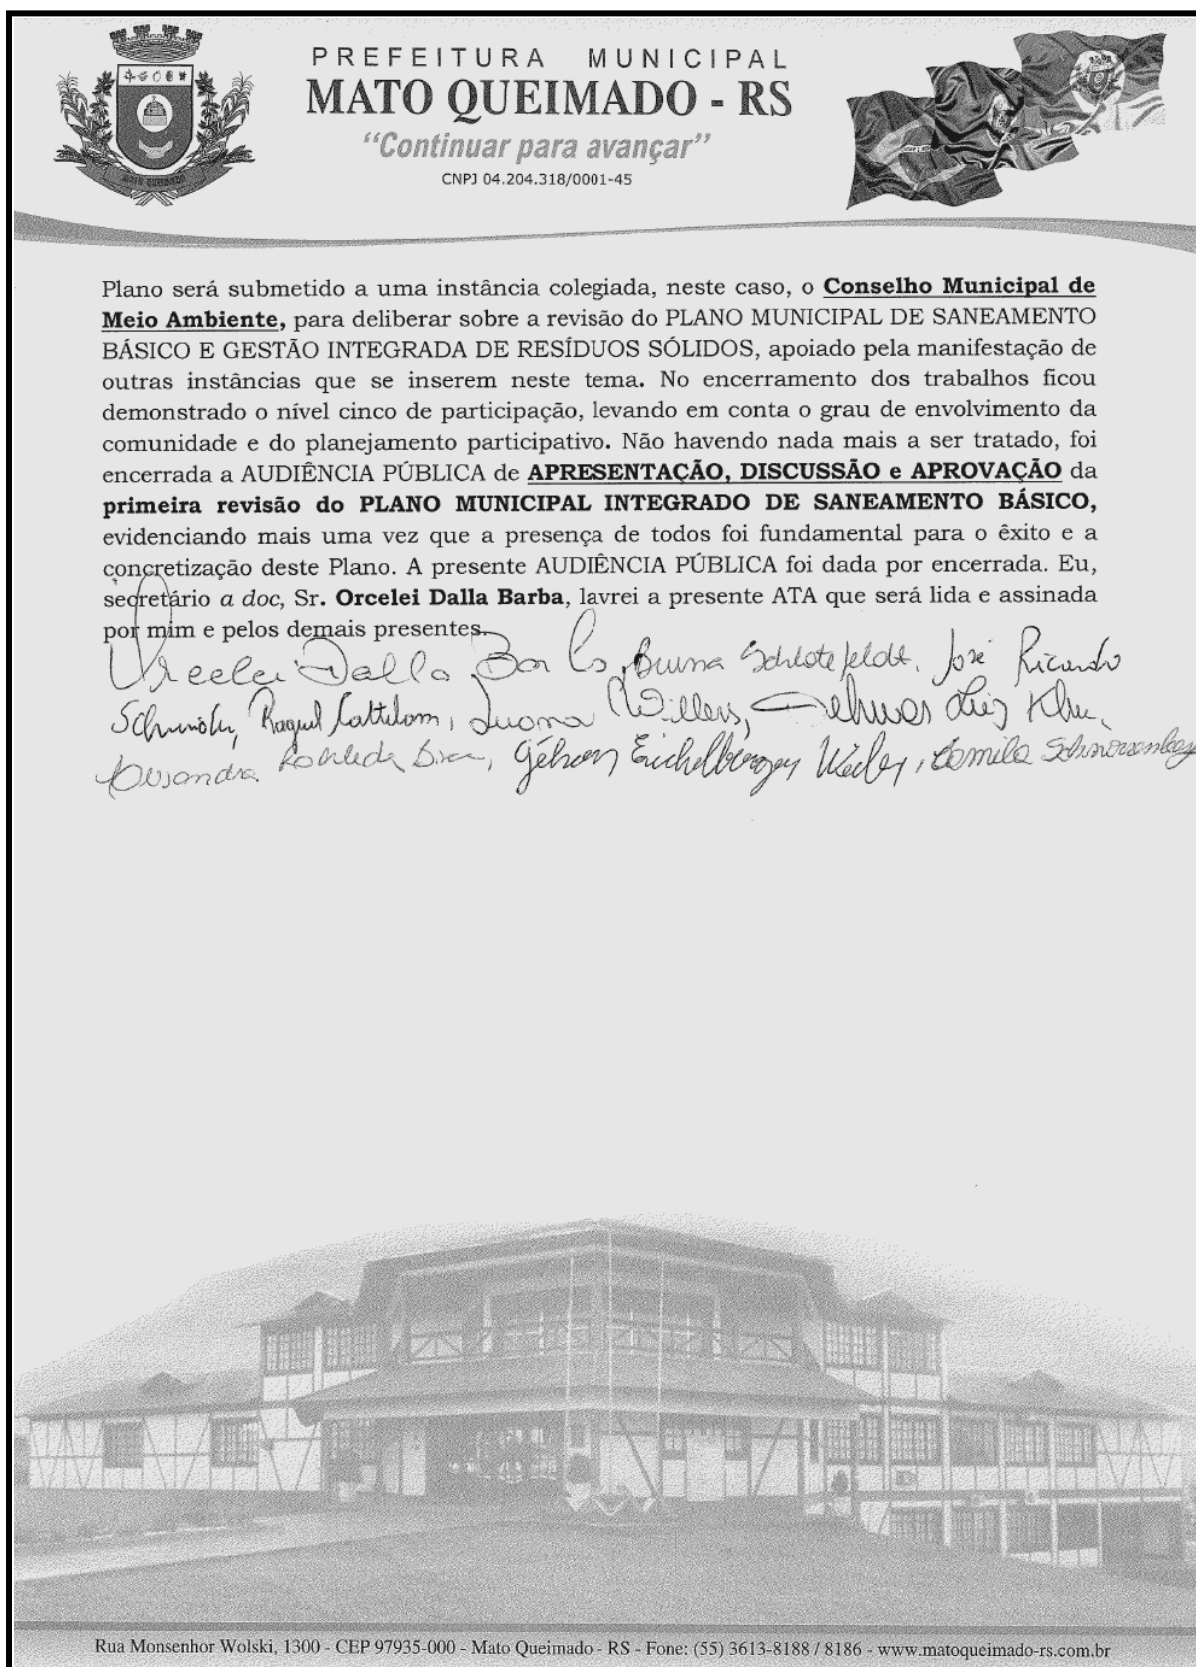 PREFEITURA MUNICIPAL
MATO QUEIMADO - RS
“Continuar para avançar”
CNPJ 04.204.318/0001-45
MATO QUEIMADO
Plano será submetido a uma instância colegiada, neste caso, o Conselho Municipal de
Meio Ambiente, para deliberar sobre a revisão do PLANO MUNICIPAL DE SANEAMENTO
BÁSICO E GESTÃO INTEGRADA DE RESÍDUOS SÓLIDOS, apoiado pela manifestação de
outras instâncias que se inserem neste tema. No encerramento dos trabalhos ficou
demonstrado o nível cinco de participação, levando em conta o grau de envolvimento da
comunidade e do planejamento participativo. Não havendo nada mais a ser tratado, foi
encerrada a AUDIÊNCIA PÚBLICA de APRESENTAÇÃO, DISCUSSÃO e APROVAÇÃO da
primeira revisão do PLANO MUNICIPAL INTEGRADO DE SANEAMENTO BÁSICO,
evidenciando mais uma vez que a presença de todos foi fundamental para o êxito e a
concretização deste Plano. A presente AUDIÊNCIA PÚBLICA foi dada por encerrada. Eu,
secretário a doc, Sr. Orcelei Dalla Barba, lavrei a presente ATA que será lida e assinada
por mim e pelos demais presentes.
Orcelei Dalla Barba, Bruna Schlotefeldt, José Ricardo
Raquel Luana Willers, Luiz
Camila
Rua Monsenhor Wolski, 1300 - CEP 97935-000 - Mato Queimado - RS - Fone: (55) 3613-8188 / 8186 - www.matoqueimado-rs.com.br